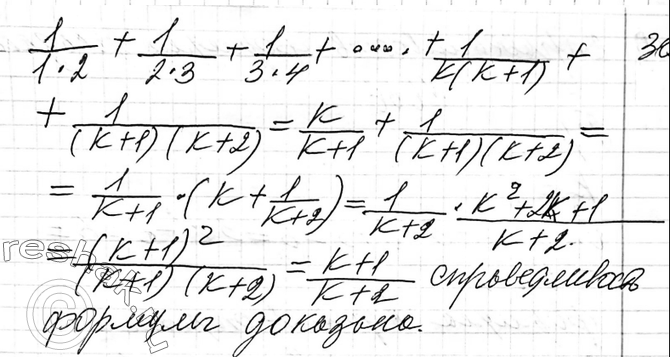 1/(1·2) + 1/(2·3) + 1/(3·4) + ... + 1/(k(k+1)) +
+ 1/((k+1)(k+2)) = k/(k+1) + 1/((k+1)(k+2)) =
= 1/(k+1) · (k + 1/(k+2)) = 1/(k+2) · (k²+2k+1)/(k+2)
= (k+1)²/((k+1)(k+2)) = (k+1)/(k+2) справедливость
формулы доказана.